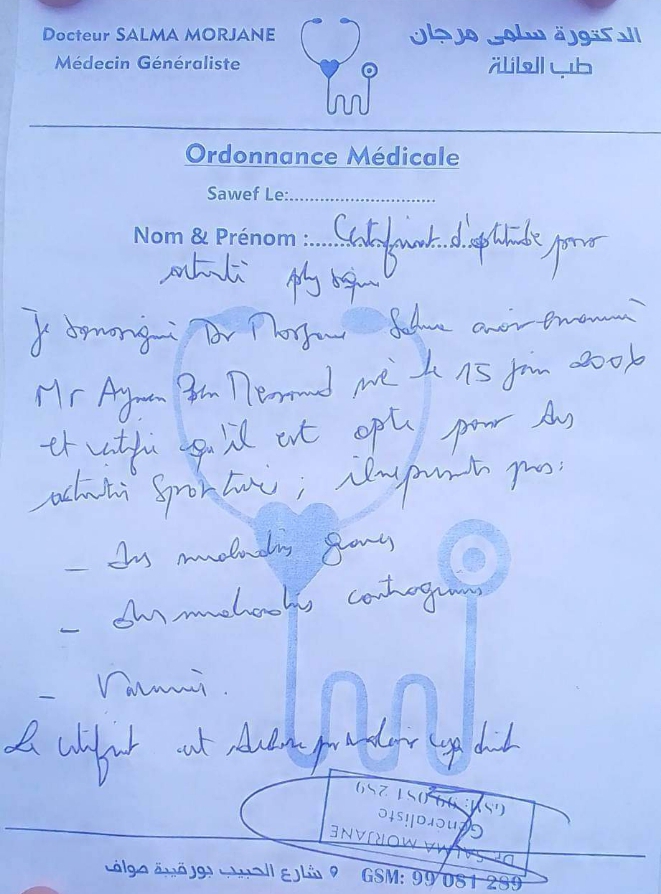 Docteur SALMA MORJANE
Médecin Généraliste
الدكتورة سلمى مرجان
طب العائلة
Ordonnance Médicale
Sawef Le:............................
Nom & Prénom :..... Certificat d'aptitude pour
activité physique
Je soussigné Dr Morjane Salma avoir examiné
Mr Aymen Ben Messaoud né le 15 juin 2006
et certifie qu'il est apte pour des
activités sportives ; il ne présente pas :
- des maladies graves
- des maladies contagieuses
-
Le certificat est délivré pour valoir droit
Dr SALMA MORJANE
Généraliste
GSM: 99 081 289
شارع الحبيب بورقيبة صواف
GSM: 99 081 289